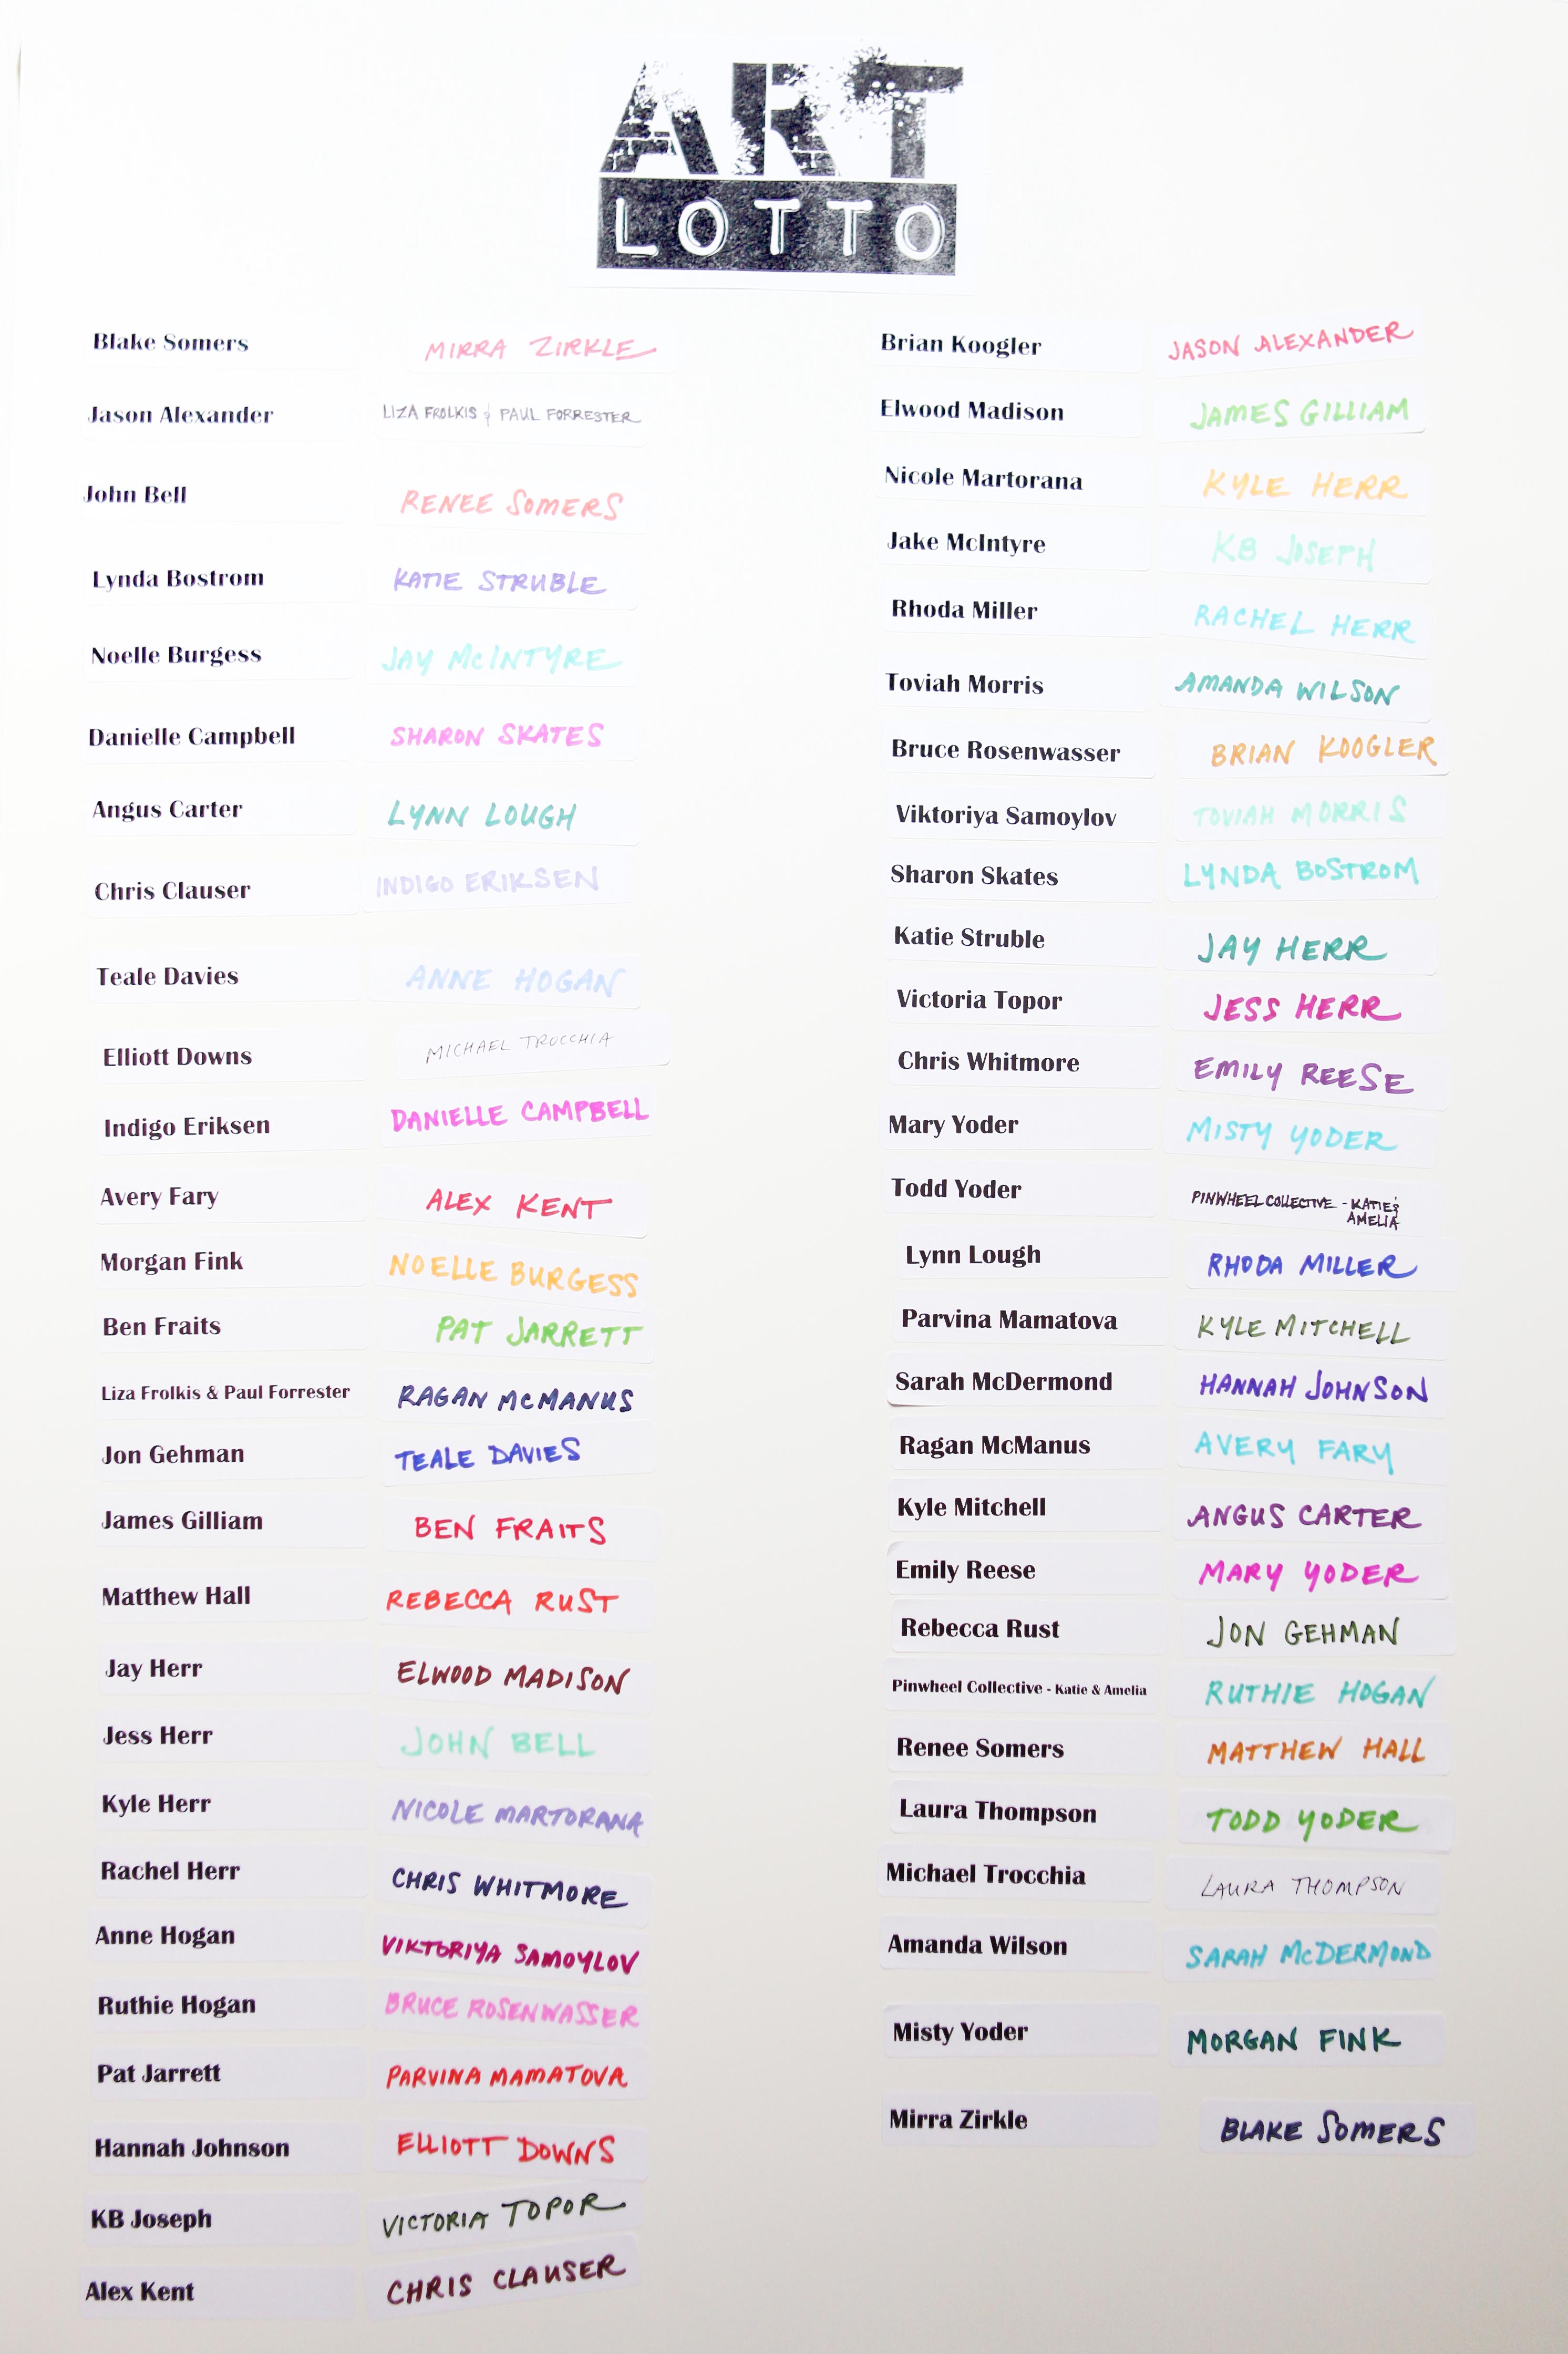 ART
LOTTO
Blake Somers MIRRA ZIRKLE
Jason Alexander LIZA FROLKIS & PAUL FORRESTER
John Bell RENEE SOMERS
Lynda Bostrom KATIE STRUBLE
Noelle Burgess JAY McINTYRE
Danielle Campbell SHARON SKATES
Angus Carter LYNN LOUGH
Chris Clauser INDIGO ERIKSEN
Teale Davies ANNE HOGAN
Elliott Downs MICHAEL TROCCHIA
Indigo Eriksen DANIELLE CAMPBELL
Avery Fary ALEX KENT
Morgan Fink NOELLE BURGESS
Ben Fraits PAT JARRETT
Liza Frolkis & Paul Forrester RAGAN McMANUS
Jon Gehman TEALE DAVIES
James Gilliam BEN FRAITS
Matthew Hall REBECCA RUST
Jay Herr ELWOOD MADISON
Jess Herr JOHN BELL
Kyle Herr NICOLE MARTORANA
Rachel Herr CHRIS WHITMORE
Anne Hogan VIKTORIYA SAMOYLOV
Ruthie Hogan BRUCE ROSENWASSER
Pat Jarrett PARVINA MAMATOVA
Hannah Johnson ELLIOTT DOWNS
KB Joseph VICTORIA TOPOR
Alex Kent CHRIS CLAUSER
Brian Koogler JASON ALEXANDER
Elwood Madison JAMES GILLIAM
Nicole Martorana KYLE HERR
Jake McIntyre KB JOSEPH
Rhoda Miller RACHEL HERR
Toviah Morris AMANDA WILSON
Bruce Rosenwasser BRIAN KOOGLER
Viktoriya Samoylov TOVIAH MORRIS
Sharon Skates LYNDA BOSTROM
Katie Struble JAY HERR
Victoria Topor JESS HERR
Chris Whitmore EMILY REESE
Mary Yoder MISTY YODER
Todd Yoder PINWHEEL COLLECTIVE - KATIE &
AMELIA
Lynn Lough RHODA MILLER
Parvina Mamatova KYLE MITCHELL
Sarah McDermond HANNAH JOHNSON
Ragan McManus AVERY FARY
Kyle Mitchell ANGUS CARTER
Emily Reese MARY YODER
Rebecca Rust JON GEHMAN
Pinwheel Collective - Katie & Amelia RUTHIE HOGAN
Renee Somers MATTHEW HALL
Laura Thompson TODD YODER
Michael Trocchia LAURA THOMPSON
Amanda Wilson SARAH McDERMOND
Misty Yoder MORGAN FINK
Mirra Zirkle BLAKE SOMERS